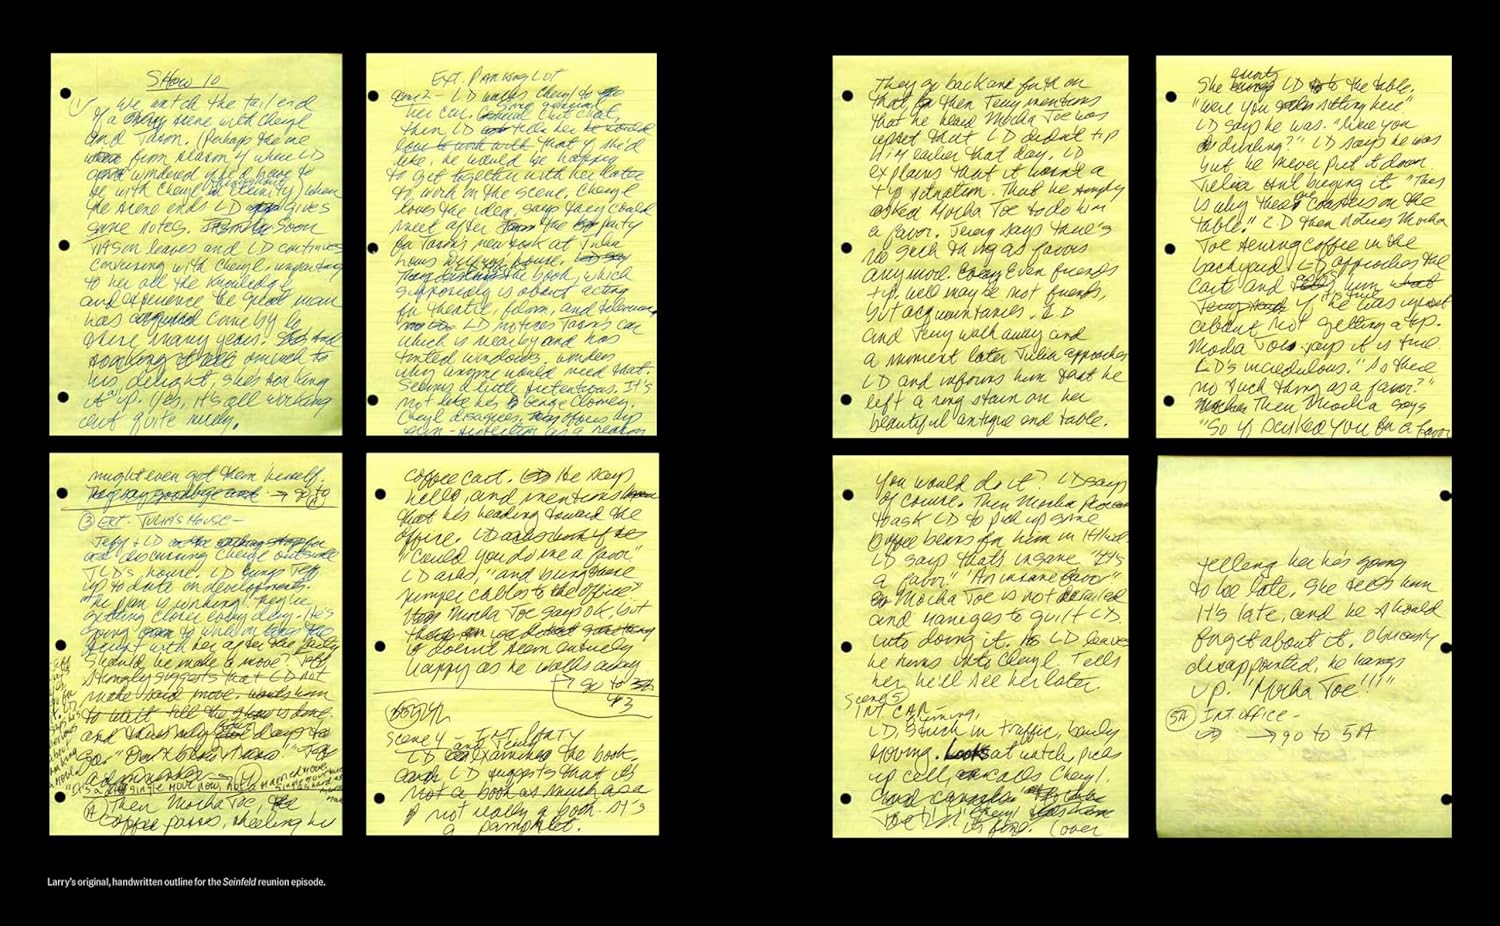 Show 10
We watch the tail end
of a scene with Cheryl
and Jason. (Perhaps the one
from season 4 where LD
wondered if he'd have to
be with Cheryl eternity) when
the scene ends LD gives
some notes. Soon
Jason leaves and LD continues
conversing with Cheryl, imparting
to her all the knowledge
and experience the great man
has come by lo
these many years. And
much to
his delight, she's soaking
it up. Yes, it's all working
out quite nicely.
EXT. PARKING LOT
Scene 2 - LD walks Cheryl to
her car. Some general chit chat,
then LD tells her
that if she'd
like, he would be happy
to get together with her later
to work on the scene. Cheryl
loves the idea, says they could
meet after the party
for Jason's new book at Julia
Louis Dreyfus house.
the book, which
supposedly is about acting
for theatre, film, and television
LD notices Jason's car
which is nearby and has
tinted windows, wonders
why anyone would need that.
Seems a little pretentious. It's
not like he's George Clooney.
Cheryl disagrees, offers up
sun-protection as a reason
might even get them himself.
They say goodbye and → go to
③ EXT. JULIA'S HOUSE -
Jeff + LD
are discussing Cheryl outside
JLD's house. LD brings Jeff
up to date on developments.
"The plan is working! They're
getting closer every day. He's
going to work on
script with her after the party
Should he make a move? Jeff
strongly suggests that LD not
make said move.
to wait till the show is done
and there's only days to
go. "Don't blow this!"
Then Mocha Joe, the
coffee passes, wheeling his
coffee cart. LD he says
hello, and mentions
that he's heading toward the
office.
"Could you do me a favor"
LD asks, "and bring these
jumper cables to the office?"
Mocha Joe says ok but
he doesn't seem entirely
happy as he walks away
→ go to
#3
Scene 4 - INT. PARTY
LD and Jerry examine the book.
LD suggests that it's
not a book as much as a
not really a book. It's
a pamphlet.
They go back and forth on
that then Jerry mentions
that he heard Mocha Joe was
upset that LD didn't tip
him earlier that day. LD
explains that it wasn't a
tip situation. That he simply
asked Mocha Joe to do him
a favor. Jerry says there's
no such thing as favors
anymore. Even friends
tip, well maybe not friends,
but acquaintances. LD
and Jerry walk away and
a moment later Julia approaches
LD and informs him that he
left a ring stain on her
beautiful antique end table.
She LD to the table.
"Were you sitting here"
LD says he was. "Were you
drinking?" LD says he was
but he never put it down.
Julia isn't buying it "This
is why there's coasters on the
table." LD then notices Mocha
Joe serving coffee in the
backyard. LD approaches the
cart and asks him
if he was upset
about not getting a tip.
Mocha Joe says it is true
LD's incredulous. "So there's
no such thing as a favor?"
Then Mocha says
"So if I asked you for a favor
you would do it? LD says
of course. Then Mocha proceeds
to ask LD to pick up some
coffee beans for him in
LD says that's insane "It's
a favor." "An insane favor"
Mocha Joe is not
and manages to guilt LD
into doing it. As LD leaves
he runs into Cheryl. Tells
her he'll see her later.
Scene 5
INT CAR -
LD, stuck in traffic, barely
moving. Looks at watch, picks
up cell, calls Cheryl.
(over
telling her he's going
to be late. She tells him
it's late, and he should
forget about it. Obviously
disappointed, he hangs
up. "Mocha Joe!!!"
5A Int. office -
→ go to 5A
Larry's original, handwritten outline for the Seinfeld reunion episode.